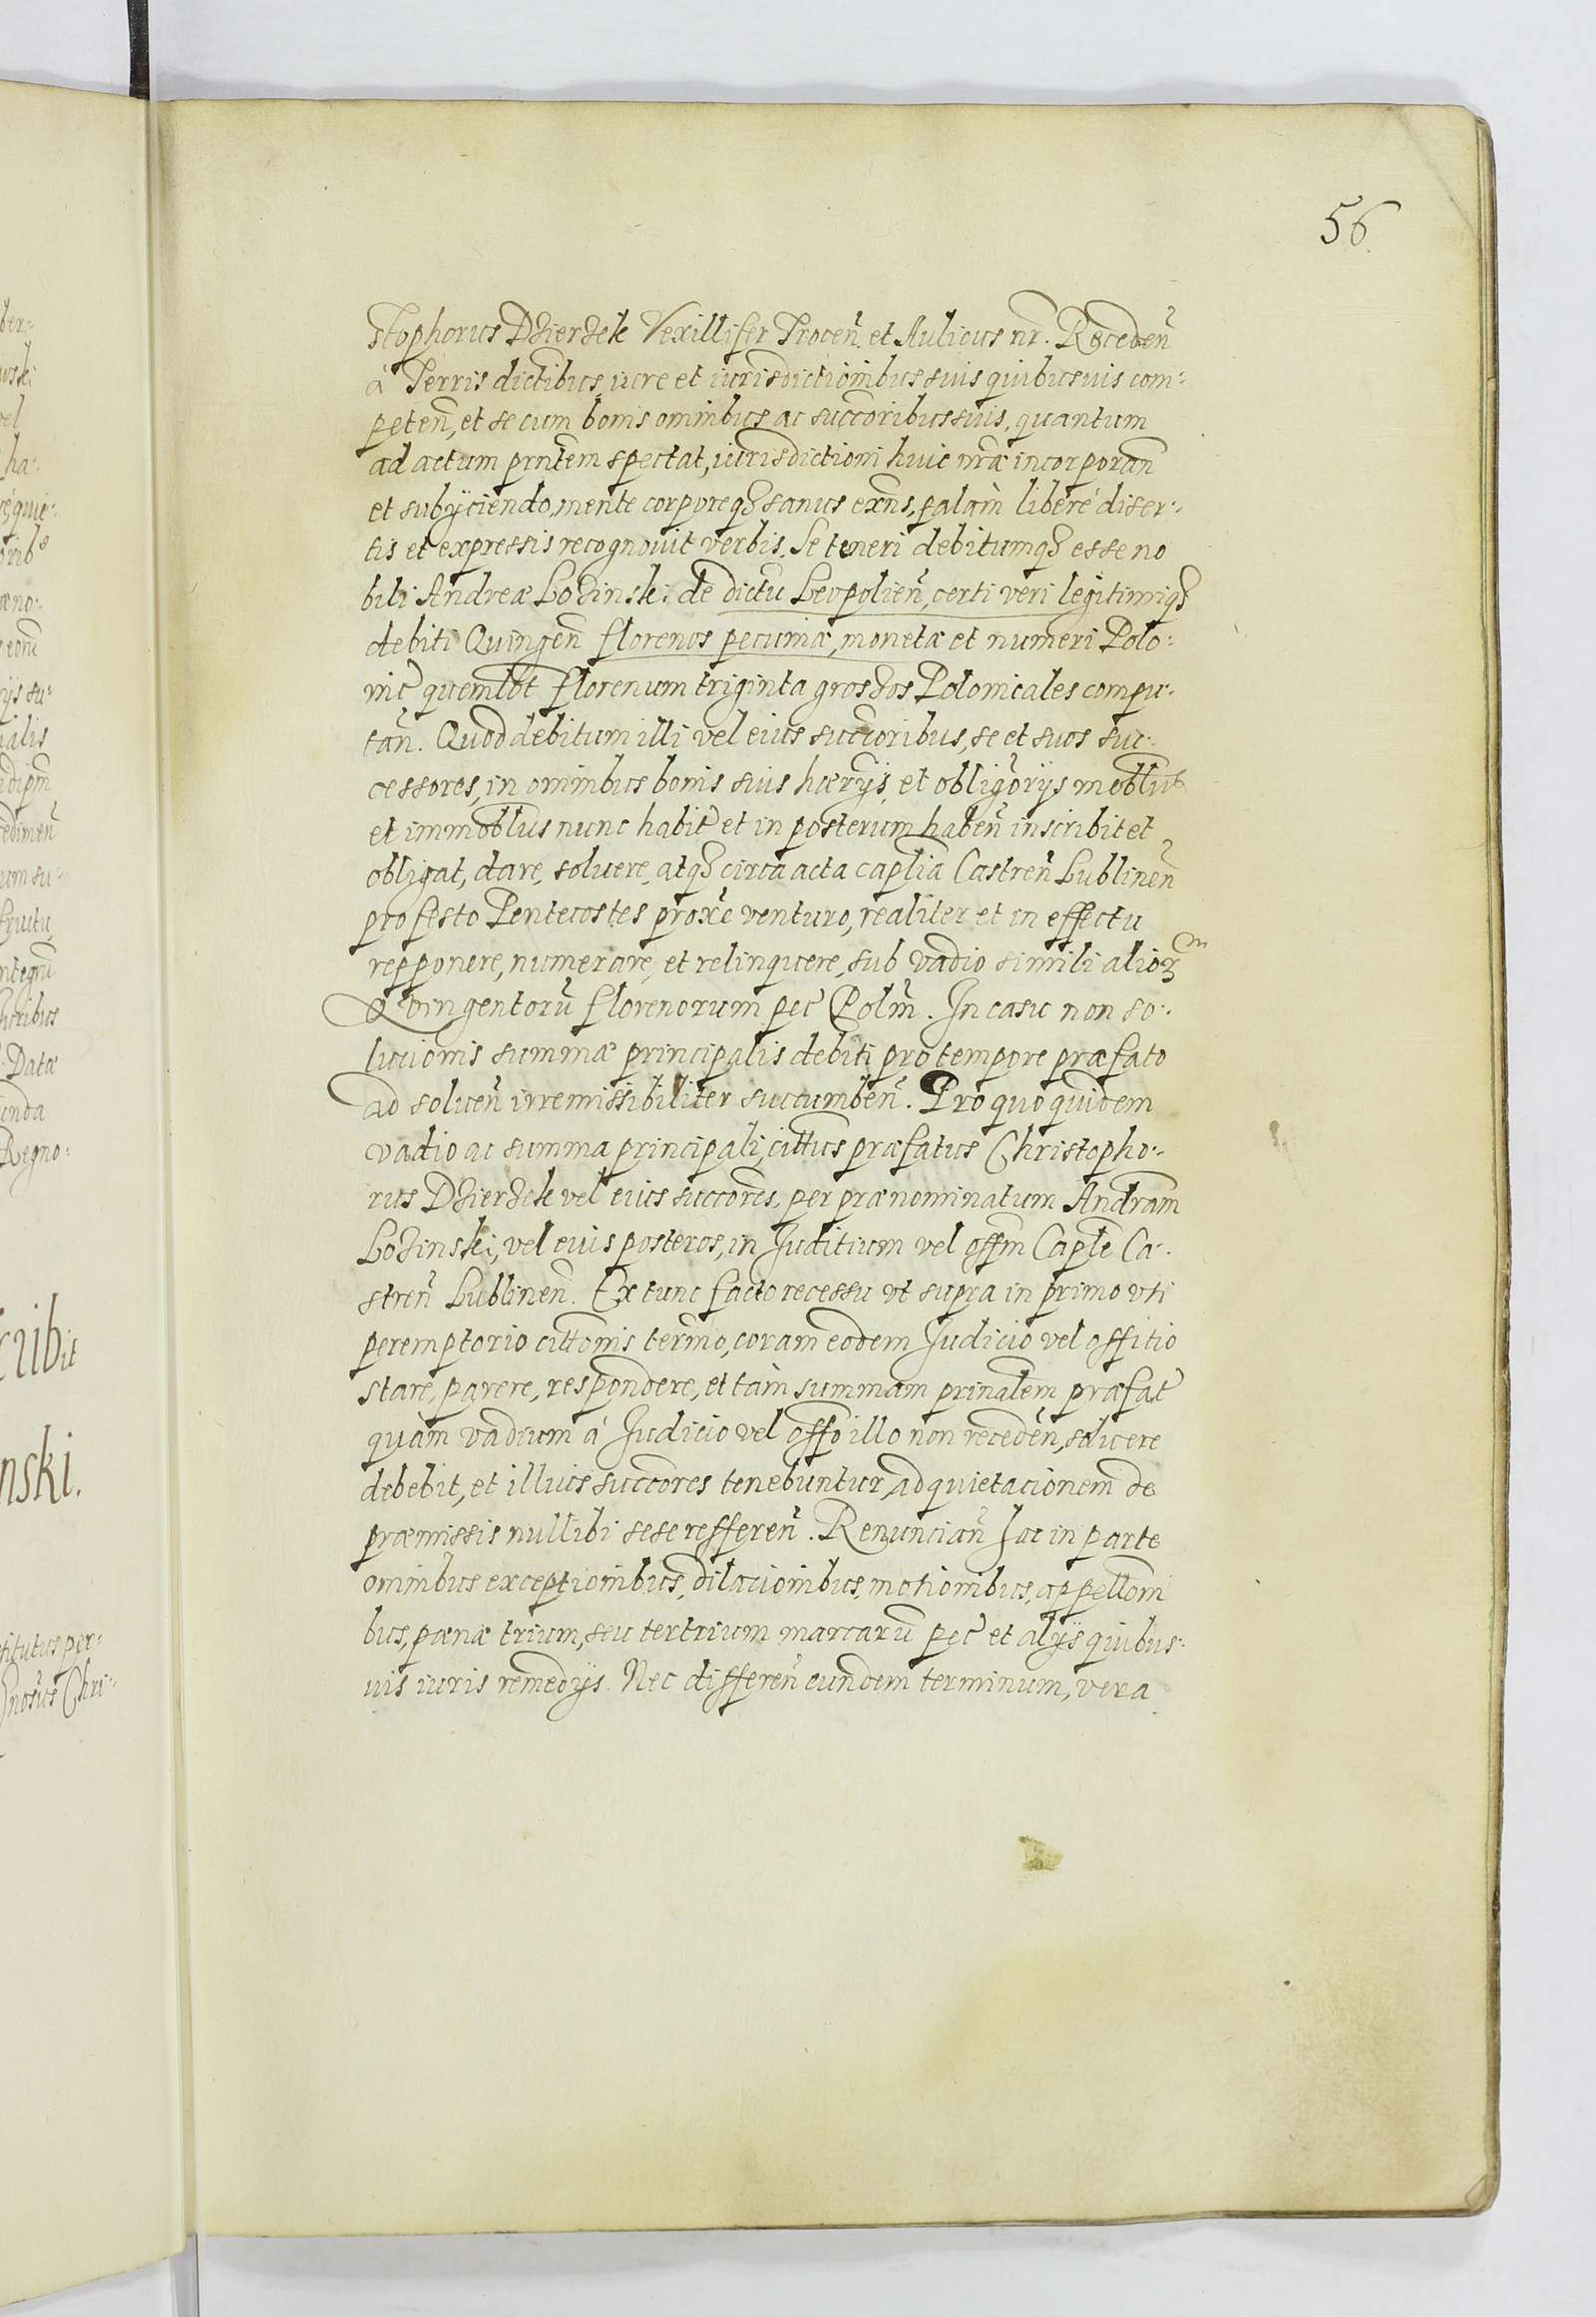 56
stophorus Dzierzek Vexillifer Trocen̄ et Aulicus nr̄. Receden̄
à Terris dictibus, iure et iurisdictionibus suis quibusuis com:
peten̄, et se cum bonis omnibus ac succōribus suis, quantum
ad actum prn̄tem spectat, iurisdictioni huic nr̄æ incorporan̄
et subÿciendo, mente corporeqꝫ sanus exn̄s, palàm liberè diser:
tis et expressis recognouit verbis, Se teneri debitumqꝫ esse no
bili Andreæ Lozinski de dictu Leopolien̄, certi veri legitimiqꝫ
debiti Quingen̄ florenos pecuniæ, monetæ et numeri Polo:
nic̄ quemlbt̄ florenum triginta groszos Polonicales compu:
tan̄. Quod debitum illi vel eius succōribus, se et suos suc:
cessores, in omnibus bonis suis hærÿs, et obligōrÿs mobl̄ius
et immobl̄ius nunc habit̄ et in posterum haben̄ inscribit et
obligat, dare, soluere, atqꝫ circa acta capl̄ia Castren̄ Lublinen̄
pro festo Pentecostes prox̄e venturo, realiter et in effectu
repponere, numerare, et relinquere, sub vadio simili alioꝝ
Quingentorū florenorum pec̄ Polm̄. In casu non so:
lucionis summæ principalis debiti pro tempore præfato
ad soluen̄ irremissibiliter succumben̄. Pro quo quidem
vadio ac summa principali, citt̄us præfatus Christopho:
rus Dzierzek vel eius succōres, per prænominatum Andr̄am
Lozinski, vel eius posteros, in Juditium vel offm̄ Capl̄e Ca:
stren̄ Lublinen̄. Ex tunc facto recessu vt supra in primo vti
peremptorio citt̄onis termō, coram eodem Judicio vel offitio
stare, parere, respondere, et tàm summam prin̄alem præfat̄
quàm vadium à Judicio vel offō illo non receden̄, soluere
debebit, et illius succōres tenebuntur, ad quietacionem de
præmissis nullibi sese refferen̄. Renuncian̄ hac in parte
omnibus exceptionibus, dilacionibus, motionibus, appellōni
bus, pœnæ trium, seu ter trium marcarū pec̄ et alÿs quibus:
uis iuris remedÿs. Nec differen̄ eundem terminum, vera